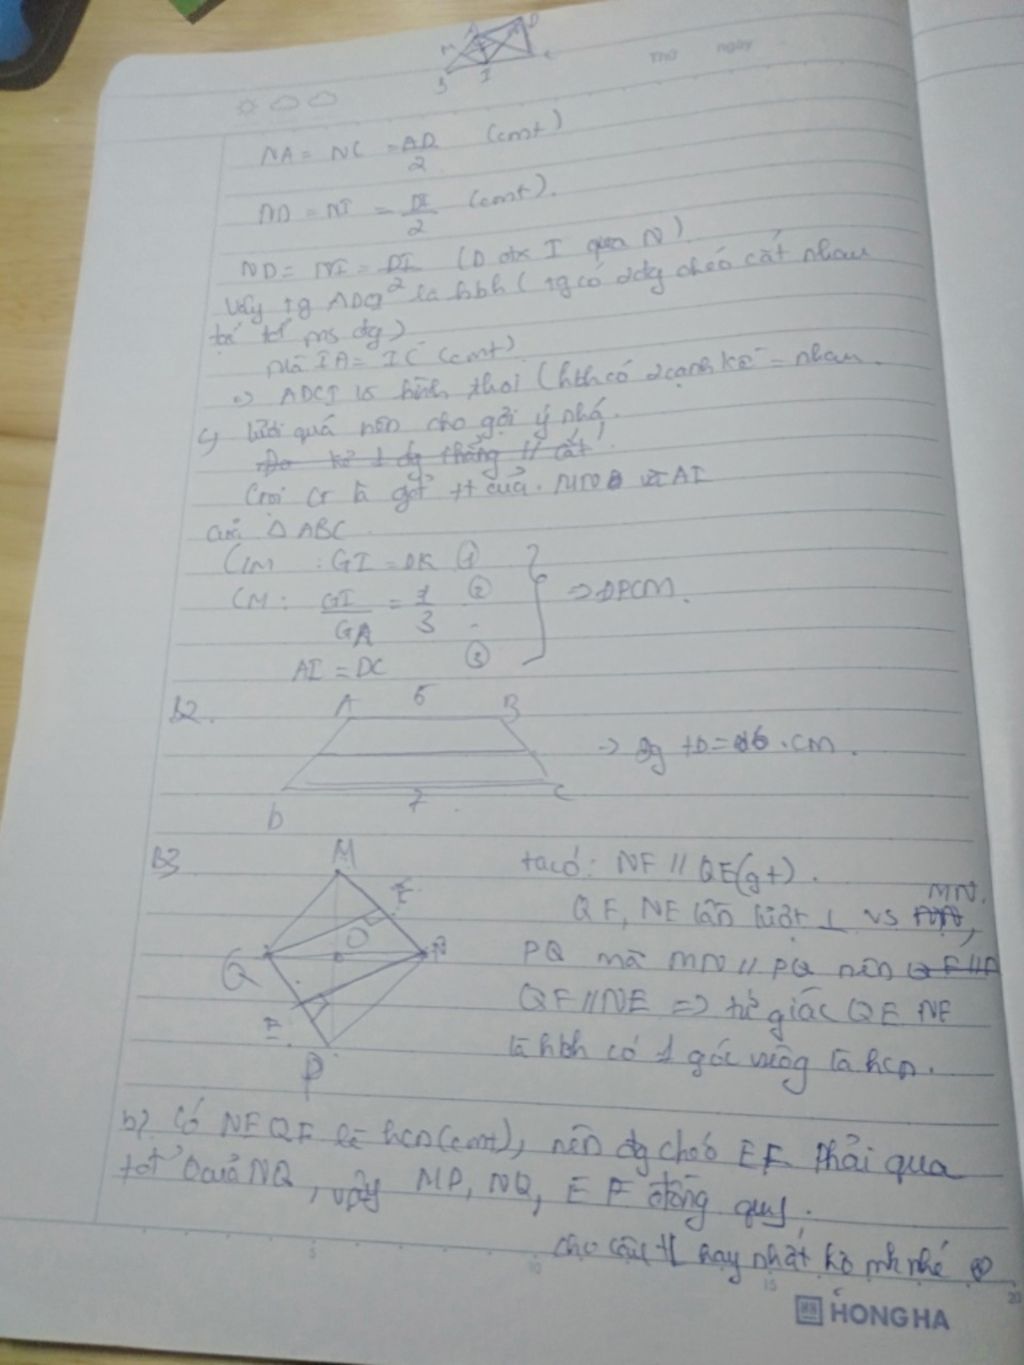 A D
M
B I C
Thứ ngày
NA = NC = AD/2 (cmt)
ND = NI = DI/2 (cmt).
ND = NI = DI/2 (D đx I qua N)
Vậy tg ADCI là hbh (tg có 2 đg chéo cắt nhau
tại tđ mỗi đg)
mà IA = IC (cmt)
=> ADCI là hình thoi (hbh có 2 cạnh kề = nhau
c) lười quá nên cho gợi ý nhá.
kẻ 1 đg thẳng // cắt
Gọi G là gđ của và AI
của Δ ABC
CM : GI = DK ①
CM: GI/GA = 1/3 ② => ĐPCM.
AI = DC ③
B2. A 5 B
=> đg tb = 6 cm.
D 7 C
B3 M
ta có: NF // QE (gt).
QF, NE lần lượt ⊥ vs MN,
Q O N
PQ mà MN // PQ nên
QF // NE => tứ giác QENF
E
P
là hbh có 1 góc vuông là hcn.
b) Có NEQF là hcn (cmt), nên đg chéo EF phải qua
tđ O của NQ, vậy MP, NQ, EF đồng quy.
cho câu tl hay nhất ko mn nhé
5 10 15 20
HONG HA